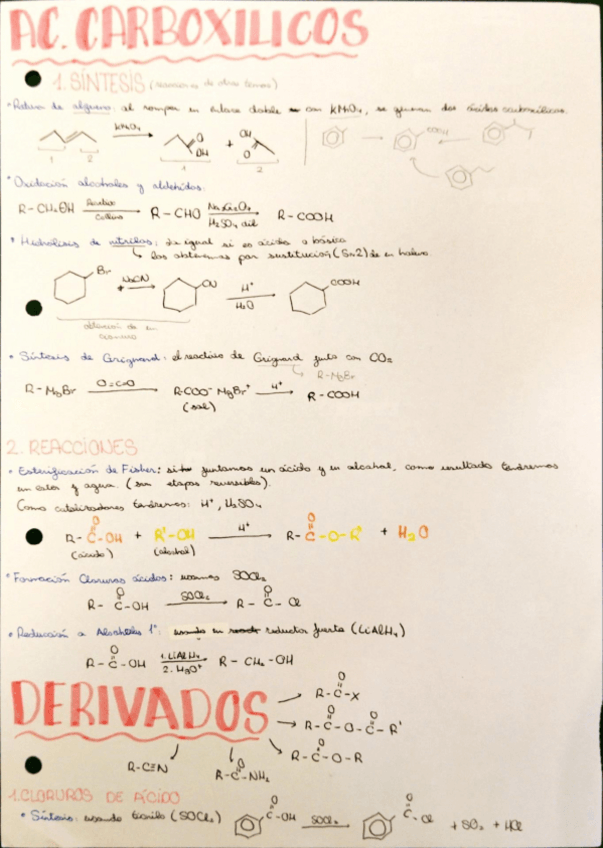 AC. CARBOXILICOS
1. SÍNTESIS (reacciones de otros temas)
• Rotura de alqueno: al romper un enlace doble con KMnO₄, se generan dos ácidos carboxílicos.
KMnO₄ OH O + OH O COOH
1 2 1 2
• Oxidación alcoholes y aldehidos:
R-CH₂OH Reactivo Collins R-CHO Na₂Cr₂O₇ H₂SO₄ dil R-COOH
• Hidrólisis de nitrilos: da igual si es ácida o básica
los obtenemos por sustitución (SN2) de un haluro.
Br + NaCN CN H⁺ H₂O COOH
obtención de un
• Síntesis de Grignard: el reactivo de Grignard junto con CO₂
R-MgBr
R-MgBr O=C=O R-COO⁻MgBr⁺ H⁺ R-COOH
(sal)
2. REACCIONES
• Esterificación de Fisher: si juntamos un ácido y un alcohol, como resultado tendremos
un ester y agua. (son etapas reversibles).
Como catalizadores tendremos: H⁺, H₂SO₄
R-C(=O)-OH + R'-OH H⁺ R-C(=O)-O-R' + H₂O
(ácido) (alcohol)
• Formación Cloruros ácidos: usamos SOCl₂
R-C(=O)-OH SOCl₂ R-C(=O)-Cl
• Reducción a Alcoholes 1º: usando un reductor fuerte (LiAlH₄)
R-C(=O)-OH 1. LiAlH₄ 2. H₃O⁺ R-CH₂-OH
DERIVADOS
R-C(=O)-X
R-C(=O)-O-C(=O)-R'
R-C(=O)-O-R
R-C≡N R-C(=O)-NH₂
1. CLORUROS DE ÁCIDO
• Síntesis: usando tionilo (SOCl₂) C(=O)-OH SOCl₂ C(=O)-Cl + SO₂ + HCl